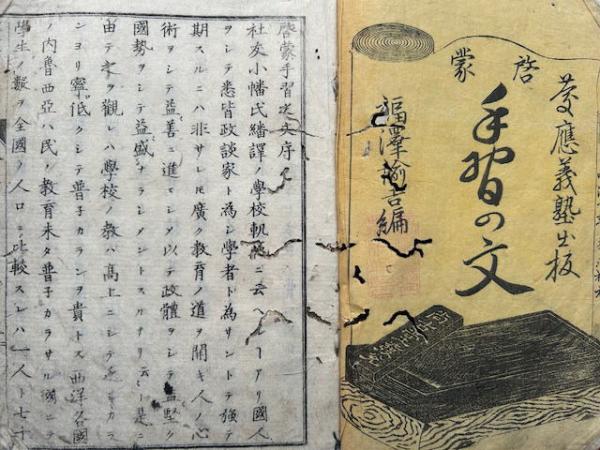 慶應義塾出板
啓蒙
手習の文
福澤諭吉編
啓蒙手習之文序
社友小幡氏繙譯ノ學校軌範ニ云ヘルヿアリ國人
ヲシテ悉皆政談家ト為シ學者ト為サントテ強テ
期スルニハ非サレ𪜈廣ク教育ノ道ヲ開キ人ノ心
術ヲシテ益善ニ進マシメ以テ政體ヲシテ益堅ク
國勢ヲシテ益盛ナラシメントスルナリ云々是ニ
由テ之ヲ觀レハ學校ノ教ハ高上ニシテカラ
ンヨリ寧低クシテ普子カランヲ貴トス西洋各國
ノ内魯西亞ハ民ノ教育未タ普子カラサル國ニテ
學生ノ數ヲ全國ノ人口ニ比較スレハ一人ト七十